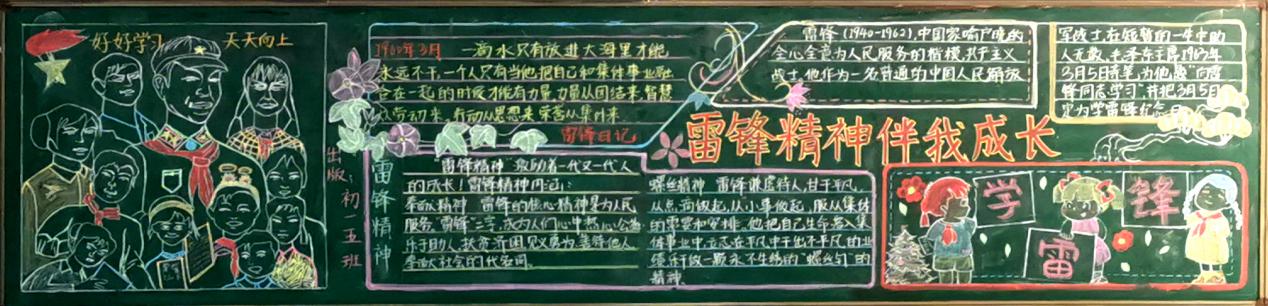 好好学习 天天向上
1960年3月 一滴水只有放进大海里才能
永远不干,一个人只有当他把自己和集体事业融
合在一起的时候才能有力量,力量从团结来,智慧
从劳动来,行动从思想来 荣誉从集体来
雷锋日记
出版:初二五班
雷锋精神
"雷锋精神"激励着一代又一代人
的成长!雷锋精神内涵:
奉献精神 雷锋的核心精神是为人民
服务,雷锋"三字,成为人们心中热心公益
乐于助人,扶贫济困,见义勇为,善待他人
奉献社会的代名词。
螺丝精神 雷锋谦虚待人,甘于平凡,
从点滴做起,从小事做起,服从集体
的需要和安排,他把自己生命融入集
体事业中,立志在平凡中干出不平凡的业
绩,乐于做一颗永不生锈的"螺丝钉"的
精神.
雷锋(1940-1962),中国家喻户晓的
全心全意为人民服务的楷模,共产主义
战士,他作为一名普通的中国人民解放
军战士在短暂的一生中助
人无数,毛泽东主席1963年
3月5日
锋同志学习",并把3月5日
定为学雷锋纪念日
雷锋精神伴我成长
学
雷
锋